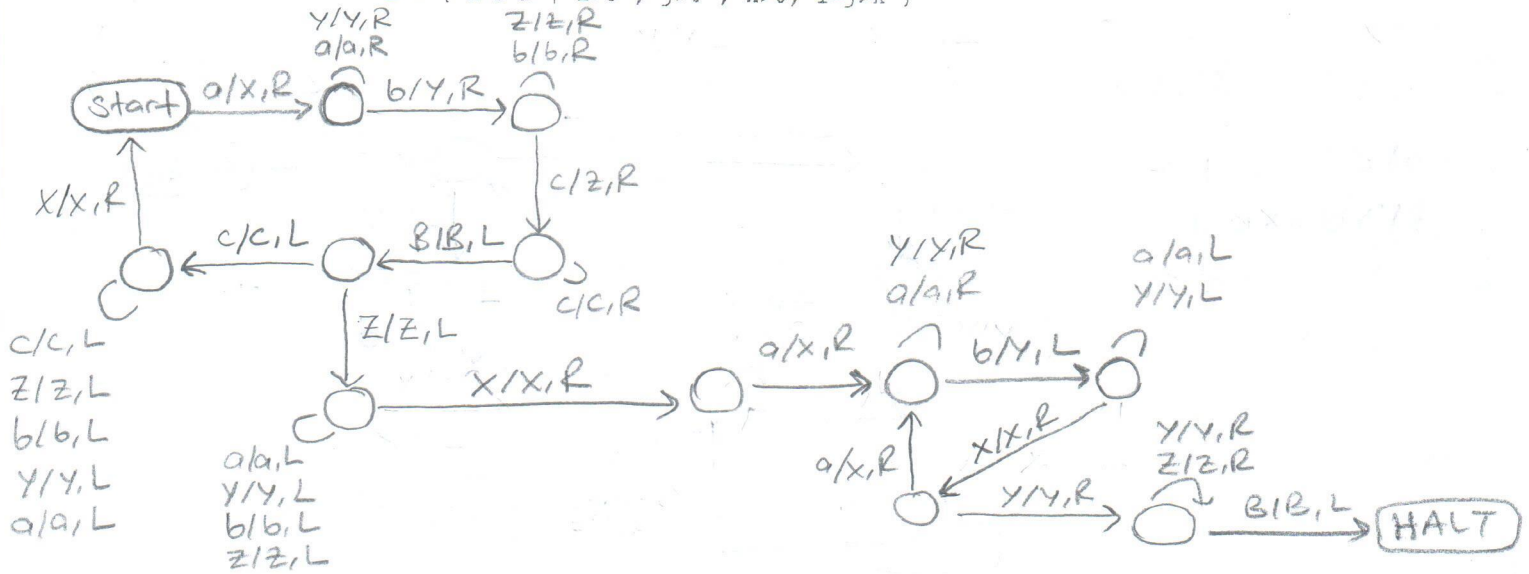 Y/Y,R
a/a,R
Z/Z,R
b/b,R
Start
a/X,R
b/Y,R
X/X,R
c/Z,R
c/c,L
B/B,L
c/c,R
Z/Z,L
c/c,L
Z/Z,L
b/b,L
Y/Y,L
a/a,L
a/a,L
Y/Y,L
b/b,L
Z/Z,L
X/X,R
a/X,R
Y/Y,R
a/a,R
b/Y,L
a/a,L
Y/Y,L
a/X,R
X/X,R
Y/Y,R
Y/Y,R
Z/Z,R
B/B,L
HALT